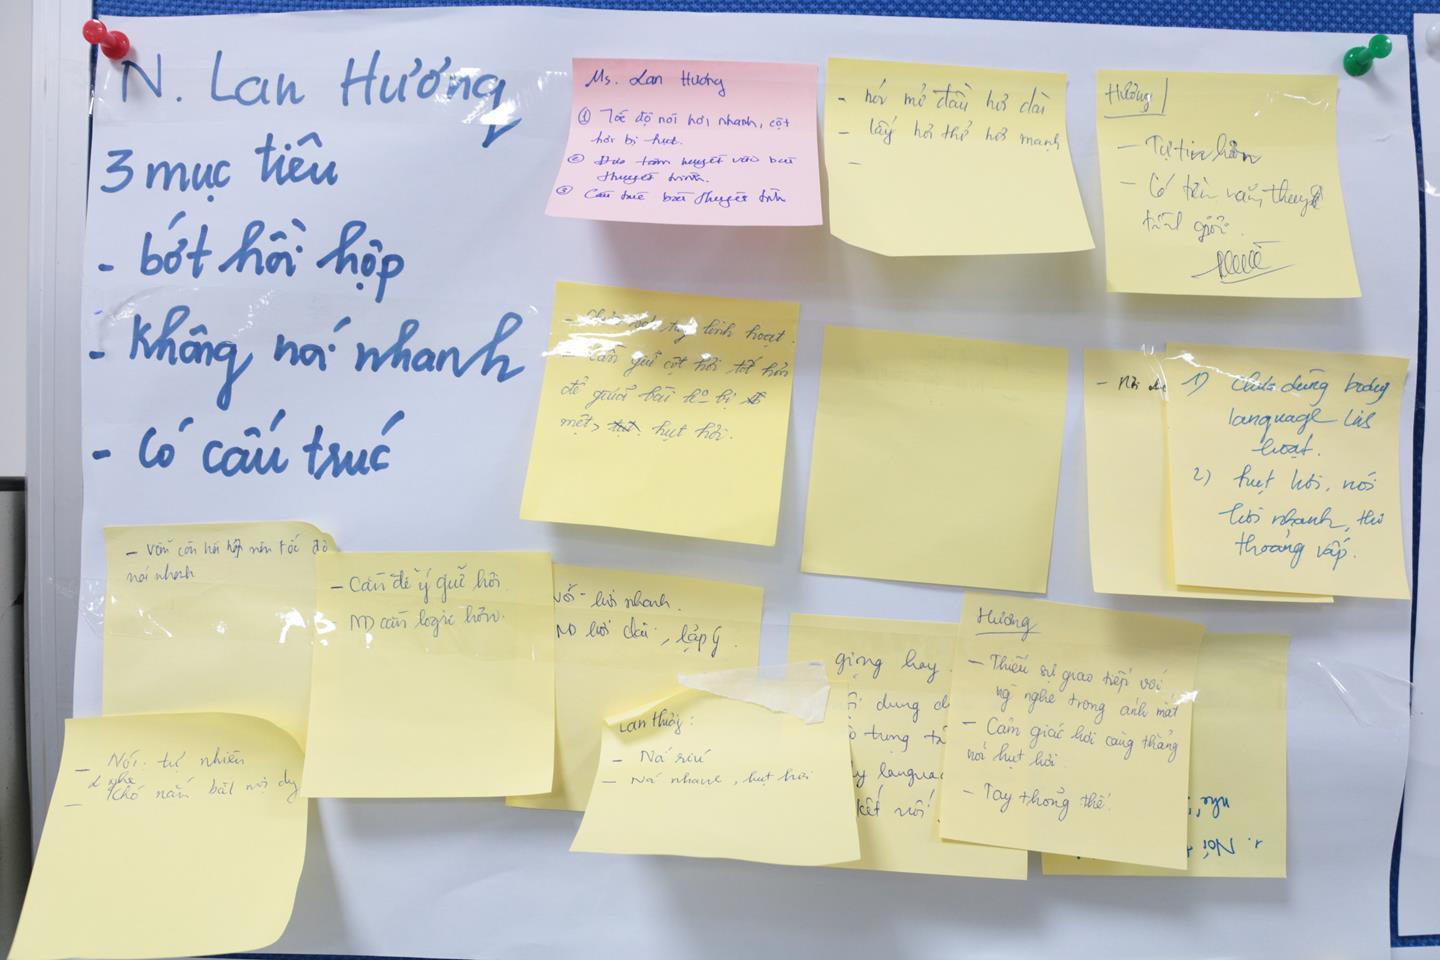 N. Lan Hương
3 mục tiêu
- bớt hồi hộp
- không nói nhanh
- Có cấu trúc
Ms. Lan Hương
① Tốc độ nói hơi nhanh, cột
hơi bị hụt.
② Đưa tâm huyết vào bài
thuyết trình.
③ Cấu trúc bài thuyết trình
- nói mở đầu hơi dài
- lấy hơi thở hơi mạnh
-
Hương
- Tự tin hơn
- Có tiềm năng thuyết
trình giỏi.
linh hoạt.
- Cần giữ cột hơi tốt hơn
để cuối bài ko bị
mệt, hụt hơi.
- Nói
1) Chưa dùng body
language linh
hoạt.
2) hụt hơi, nói
hơi nhanh, thi
thoảng vấp.
- Vẫn còn hồi hộp nên tốc độ
nói nhanh
- Cần để ý giữ hơi.
ND cần logic hơn.
nói hơi nhanh.
ND hơi dài, lặp ý
- Nói tự nhiên
-
khó nắm bắt nội dg
Lan Hương:
- Nói
- Nói nhanh, hụt hơi
- giọng hay.
dung
trung
languag
kết nối
Hương
- Thiếu sự giao tiếp với
ng nghe trong ánh mắt
- Cảm giác hơi căng thẳng
nói hụt hơi.
- Tay thõng thế.
1. Nói